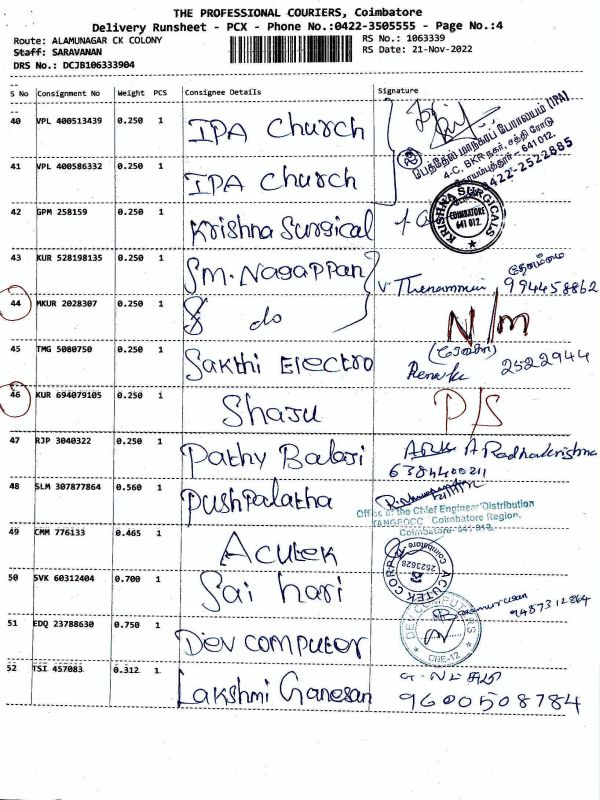 THE PROFESSIONAL COURIERS, Coimbatore
Delivery Runsheet - PCX - Phone No.:0422-3505555 - Page No.:4
Route: ALAMUNAGAR CK COLONY
RS No.: 1063339
Staff: SARAVANAN
RS Date: 21-Nov-2022
DRS No.: DCJB106333904
S No Consignment No Weight PCS Consignee Details Signature
40 VPL 400513439 0.250 1 IPA Church
பெத்தேல் மாநகரப் பேராலயம் (IPA)
4-C, BKR நகர், சத்தி ரோடு
கோயம்புத்தூர் - 641 012.
0422-2522885
41 VPL 400586332 0.250 1 IPA Church
42 GPM 258159 0.250 1 Krishna Surgical
KRISHNA SURGICALS
COIMBATORE
641 012
43 KUR 528198135 0.250 1 SM. Nagappan
V. Thenammai, 994458862
44 MKUR 2028307 0.250 1 do N/m
45 TMG 5080750 0.250 1 Sakthi Electro
Renuka 2522944
46 KUR 694079105 0.250 1 Shaju P/S
47 RJP 3040322 0.250 1 Pathy Balaji A Radhakrishna
6384400211
48 SLM 307877864 0.560 1 Pushpalatha
Office of the Chief Engineer Distribution
TANGEDCO Coimbatore Region,
Coimbatore 641 012
49 CMM 776133 0.465 1 Acutek
ACUTEK CORP
Coimbatore
2523628
50 SVK 60312404 0.700 1 Sai hari
9487312864
51 EDQ 23788630 0.750 1 Dev computer
DEV COMPUTERS
CBE-12
52 TSI 457083 0.312 1 Lakshmi Ganesan
9600508784